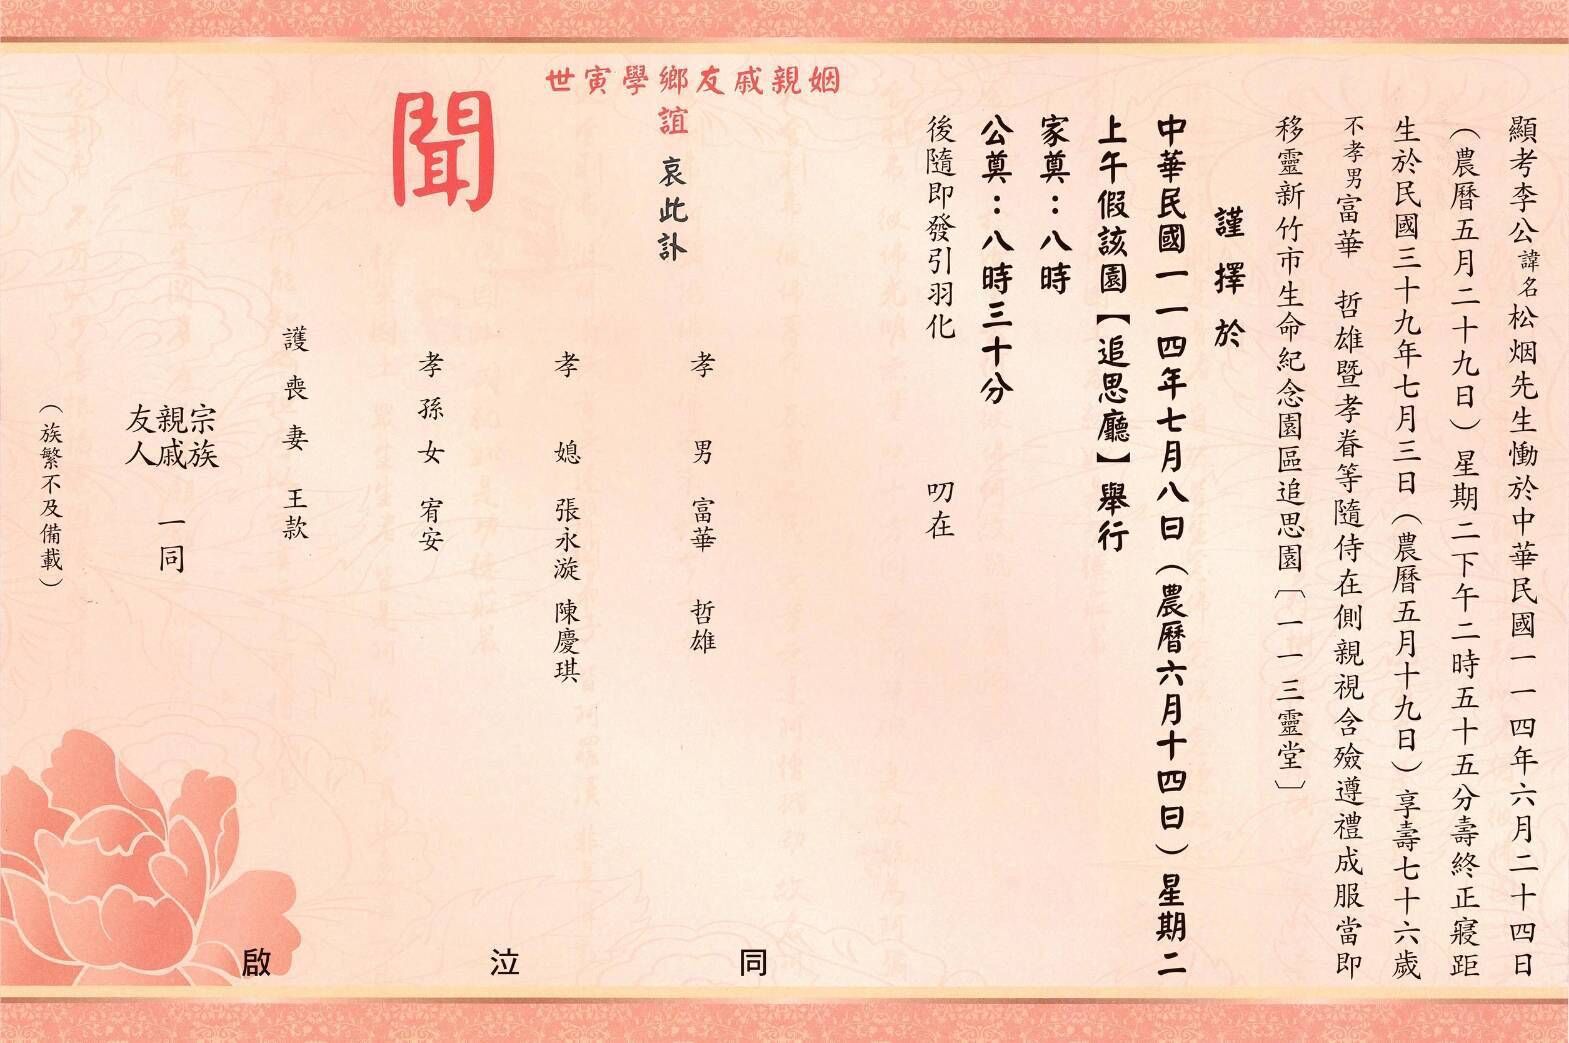 顯考李公諱名松烟先生慟於中華民國一一四年六月二十四日
（農曆五月二十九日）星期二下午二時五十五分壽終正寢距
生於民國三十九年七月三日（農曆五月十九日）享壽七十六歲
不孝男富華 哲雄暨孝眷等隨侍在側親視含殮遵禮成服當即
移靈新竹市生命紀念園區追思園〔一一三靈堂〕
謹擇於
中華民國一一四年七月八日（農曆六月十四日）星期二
上午假該園【追思廳】舉行
家奠：八時
公奠：八時三十分
後隨即發引羽化 叨在
姻親戚友鄉學寅世
誼 哀此訃
聞
孝男 富華 哲雄
孝媳 張永漩 陳慶琪
孝孫女 宥安
護喪妻 王款
宗族
親戚
友人
一同
（族繁不及備載）
同泣啟